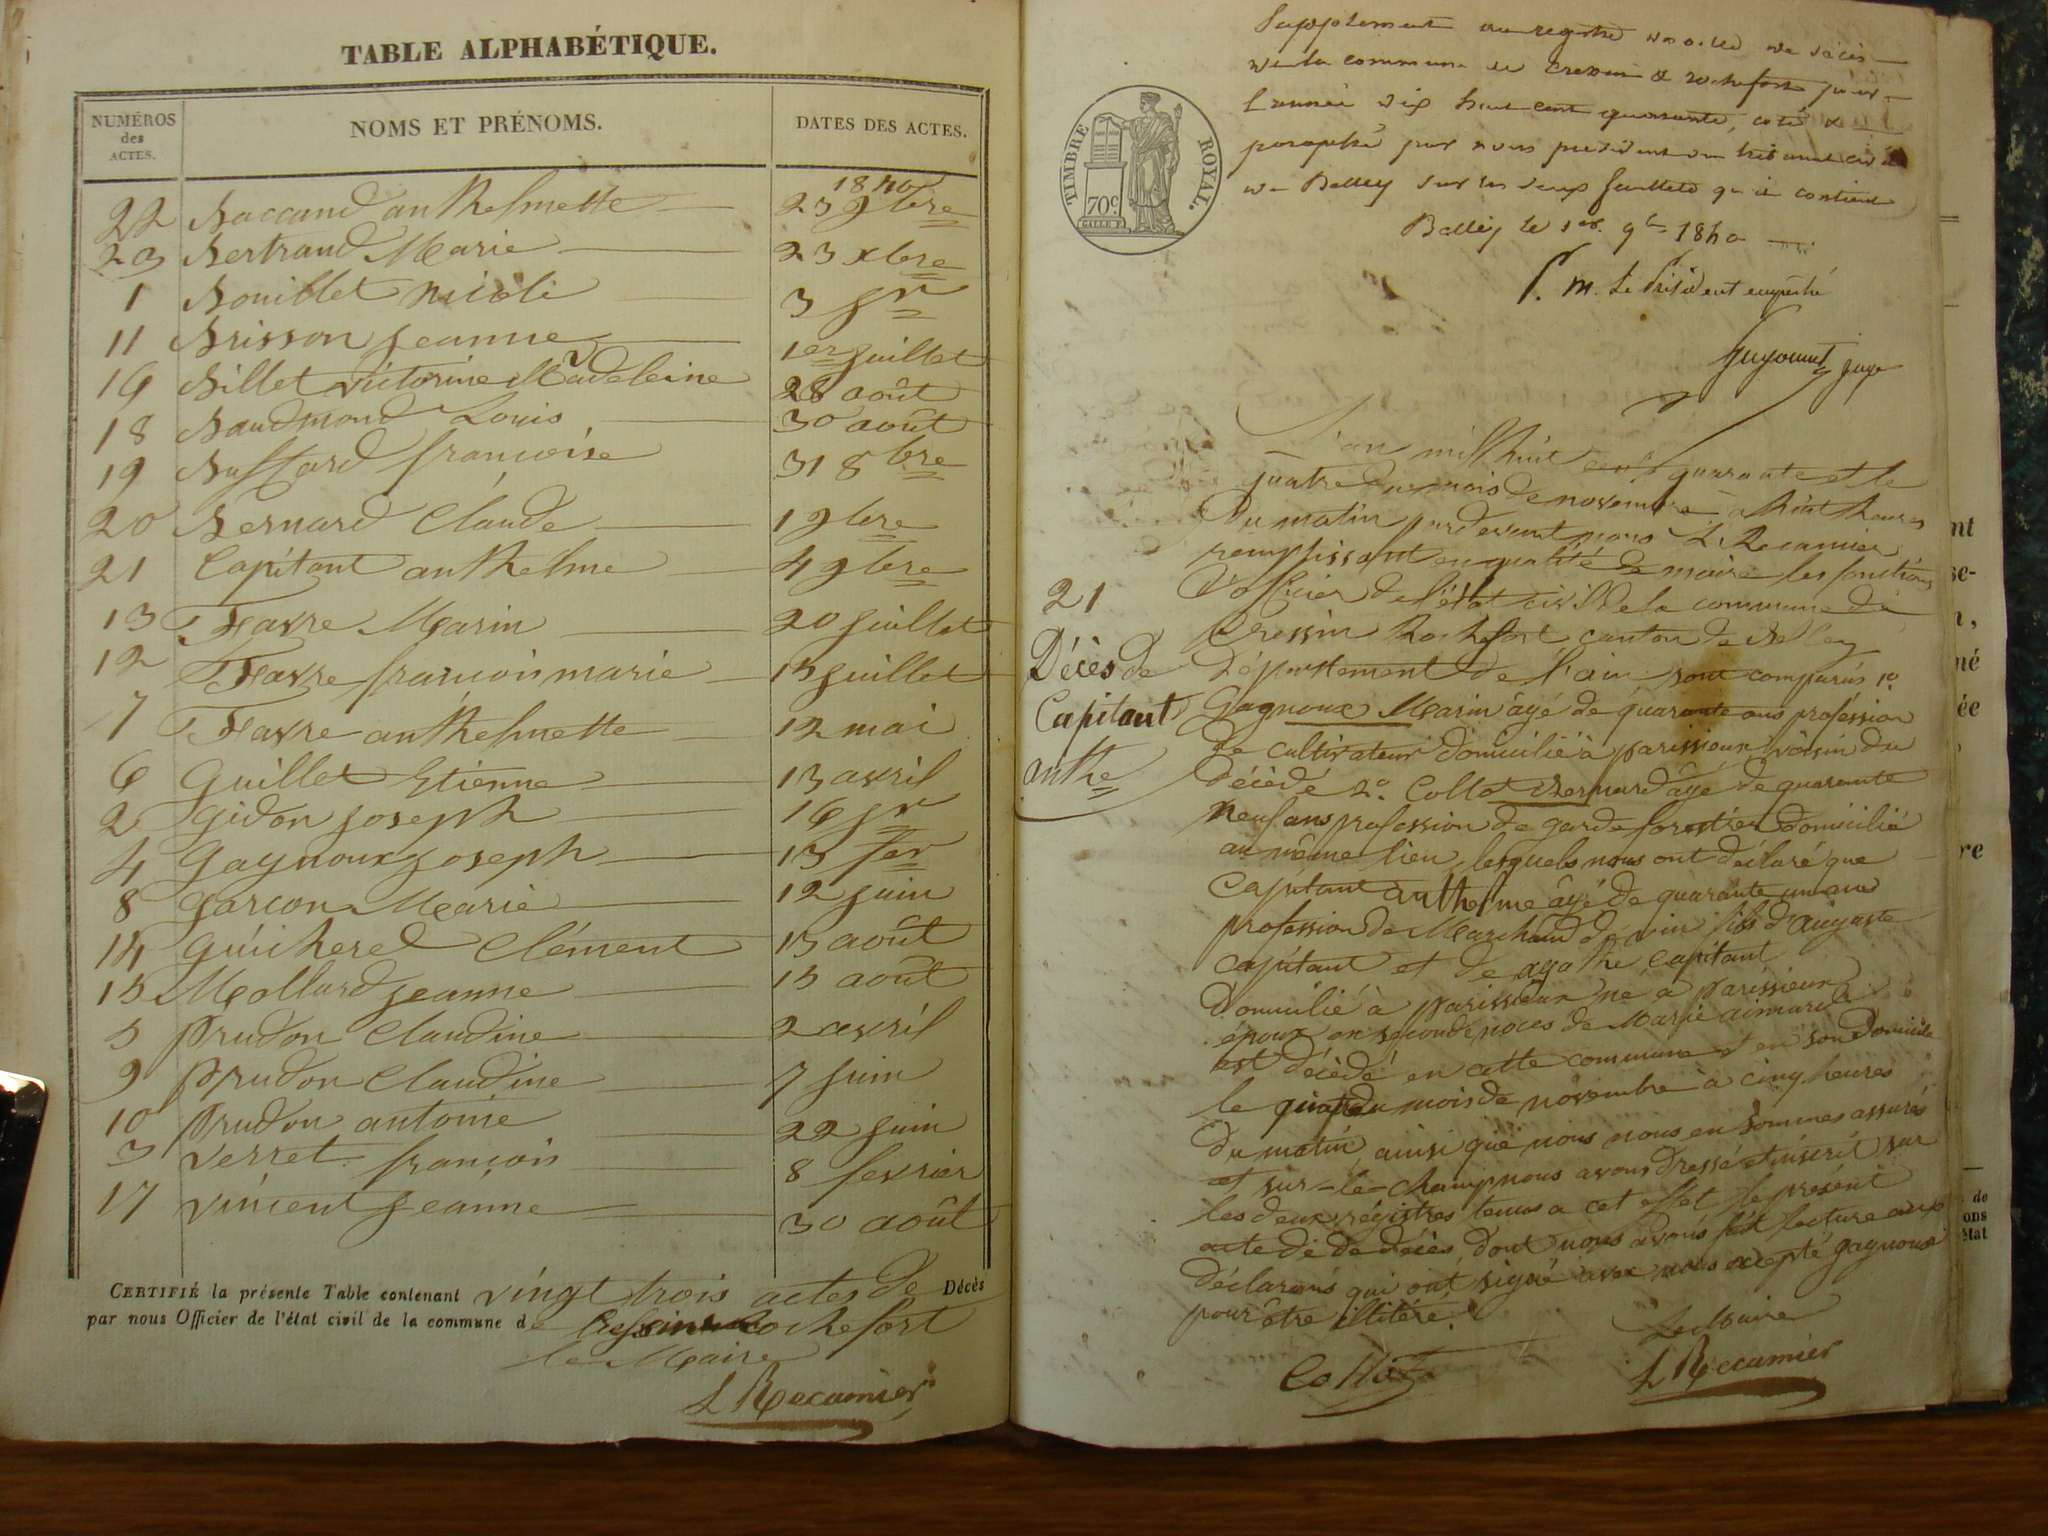 TABLE ALPHABÉTIQUE.
NUMÉROS des ACTES. NOMS ET PRÉNOMS. DATES DES ACTES.
1840
22 Baccand anthelmette 23 9bre
23 Bertrand Marie 23 xbre
1 Bouillet 3 jr
11 Brisson jeanne 1er juillet
16 Billet victorine Madeleine 28 août
18 Baudmond Louis 30 août
19 Buffard françoise 31 8bre
20 Bernard Claude 1 9bre
21 Capitant anthelme 4 9bre
13 Favre Marin 20 juillet
12 Favre françois marie 15 juillet
7 Favre anthelmette 12 mai
6 Guillet Etienne 13 avril
2 Gidon joseph 16 jr
4 Gagnoux joseph 13 fer
8 Garçon Marie 12 juin
14 Guicherel Clément 15 août
15 Mollard jeanne 15 août
5 Prudon Claudine 2 avril
9 Prudon Claudine 7 juin
10 Prudon antoine 22 juin
3 Verret françois 8 fevrier
17 Vincent jeanne 30 août
CERTIFIÉ la présente Table contenant vingt trois actes de Décès
par nous Officier de l'état civil de la commune de Cressin Rochefort
le Maire
L Recamier
Supplement au registre de décès
de la commune de Cressin & rochefort pour
l'année dix huit cent quarante, coté &
paraphé par nous président du tribunal civil
de Belley sur les deux feuillets qu'il contient
Belley le 1er. 9bre 1840
P. M. le Président empêché
juge
TIMBRE ROYAL.
70c
L'an mil huit cent quarante et le
quatre du mois de novembre à huit heures
Du matin par devant nous L. Recamier
remplissant en qualité de maire les fonctions
D'officier de l'état civil de la commune de
Cressin Rochefort canton de Belley
Département de l'ain sont comparus 1o.
Gagnoux Marin âgé de quarante ans profession
De cultivateur Domicilié à parissieux voisin du
décédé 2o. Collot Bernard âgé de quarante
neuf ans profession de garde forestier Domicilié
au même lieu, lesquels nous ont déclaré que
Capitant anthelme âgé de quarante un ans
profession de Marchand de vin fils d'auguste
capitant et de agathe Capitant
Domicilié à parissieux né à parissieux
époux en seconde noces de Marie aimard
est décédé en cette commune et en son Domicile
le quatre du mois de novembre à cinq heures
Du matin, ainsi que nous nous en sommes assurés
et sur-le-champ nous avons dressé et inscrit sur
les deux régistres tenus a cet effet le présent
acte de de décès, dont nous avons fait lecture aux
déclarans qui ont signé avec nous excepté gagnoux
pour être illitéré.
21
Décès de
Capitant
anthe
Collot
Le Maire
L Recamier